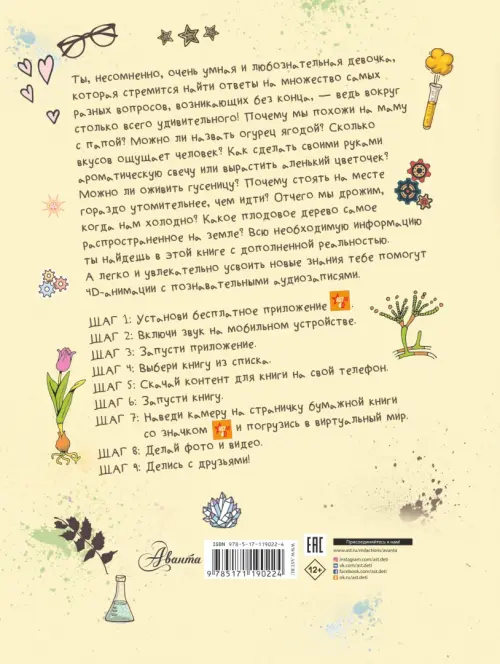 Ты, несомненно, очень умная и любознательная девочка,
которая стремится найти ответы на множество самых
разных вопросов, возникающих без конца, — ведь вокруг
столько всего удивительного! Почему мы похожи на маму
с папой? Можно ли назвать огурец ягодой? Сколько
вкусов ощущает человек? Как сделать своими руками
ароматическую свечу или вырастить аленький цветочек?
Можно ли оживить гусеницу? Почему стоять на месте
гораздо утомительнее, чем идти? Отчего мы дрожим,
когда нам холодно? Какое плодовое дерево самое
распространенное на земле? Всю необходимую информацию
ты найдешь в этой книге с дополненной реальностью.
А легко и увлекательно усвоить новые знания тебе помогут
4D-анимации с познавательными аудиозаписями.
ШАГ 1: Установи бесплатное приложение.
ШАГ 2: Включи звук на мобильном устройстве.
ШАГ 3: Запусти приложение.
ШАГ 4: Выбери книгу из списка.
ШАГ 5: Скачай контент для книги на свой телефон.
ШАГ 6: Запусти книгу.
ШАГ 7: Наведи камеру на страничку бумажной книги
со значком и погрузись в виртуальный мир.
ШАГ 8: Делай фото и видео.
ШАГ 9: Делись с друзьями!
Аванта
ISBN 978-5-17-119022-4
9 785171 190224
WWW.AST.RU
EAC
12+
Присоединяйтесь к нам!
www.ast.ru/redactions/avanta
instagram.com/ast.deti
vk.com/ast.deti
facebook.com/ast.deti
ok.ru/ast.deti